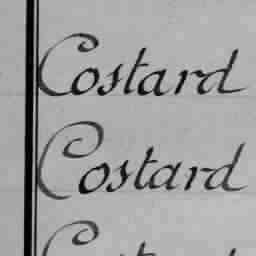 Costard
Costard